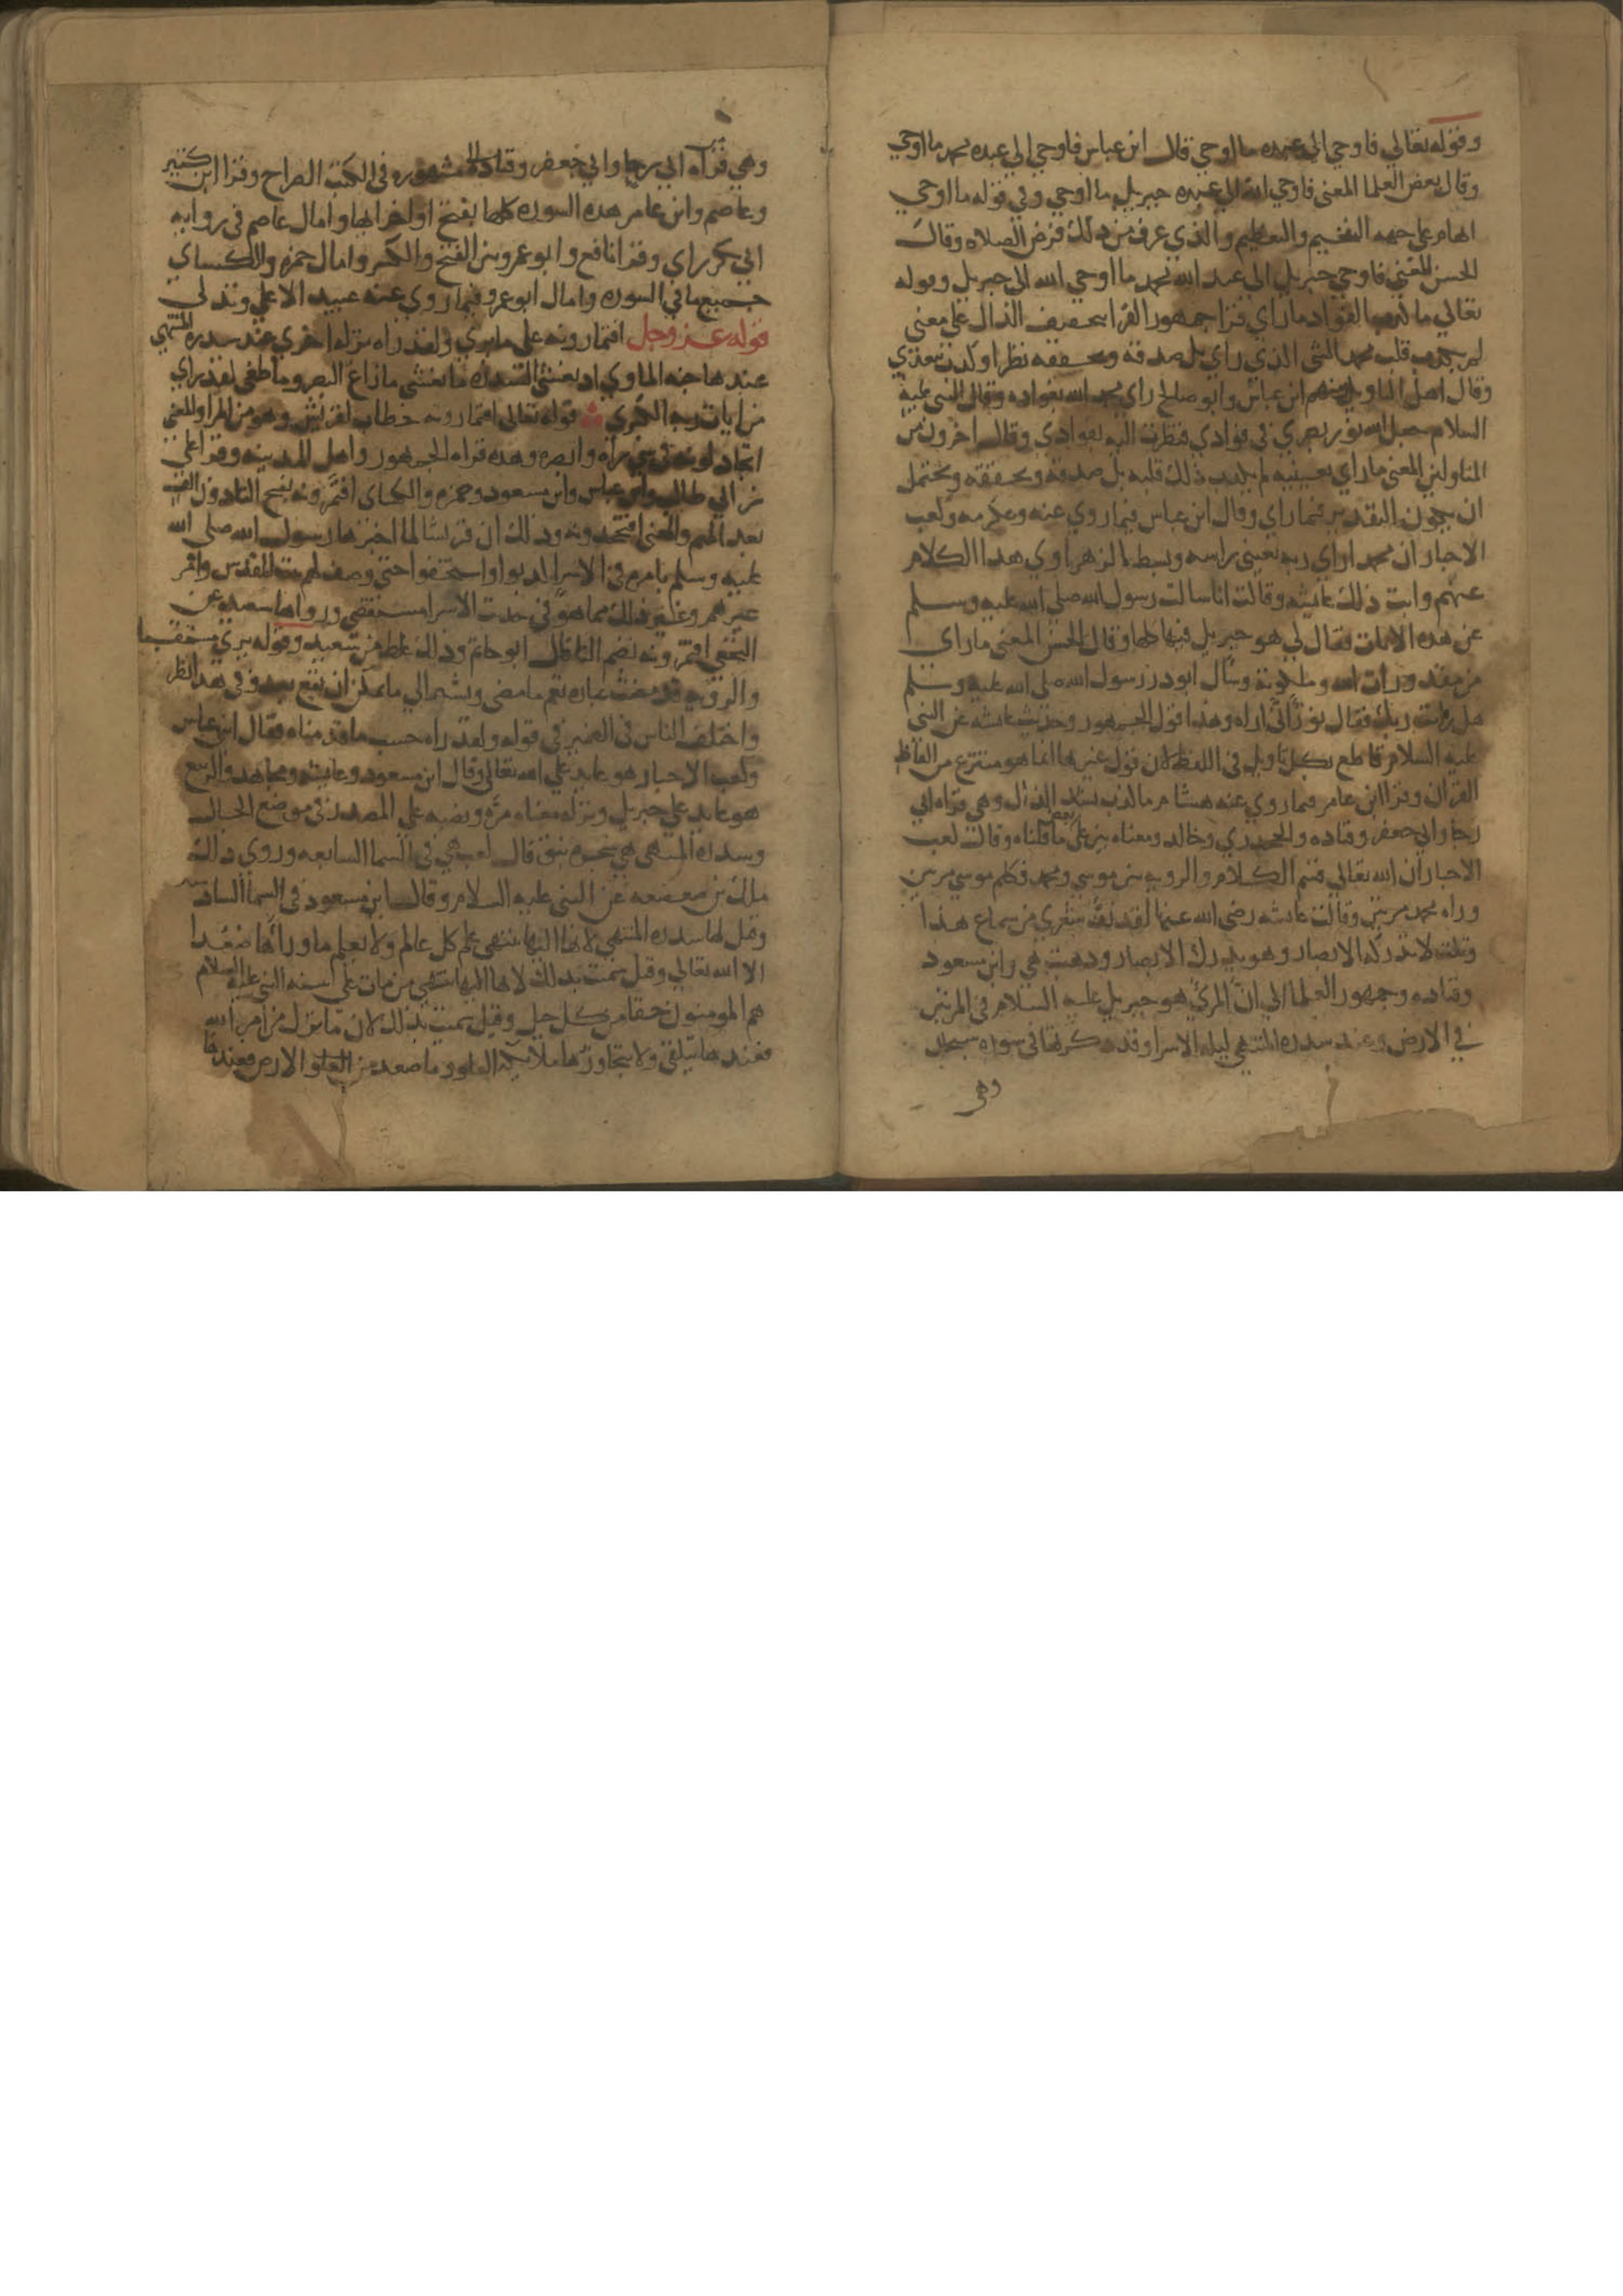 وقوله تعالى فاوحي الي عبده ما اوحي قال ابن عباس فاوحي الي عبده محمد ما اوحي
وقال بعض العلما المعنى فاوحي الله الي عبده جبريل ما اوحي وفي قوله ما اوحي
ابهام علي جهه التفخيم والتعظيم والذي عرف من ذلك فرض الصلاه وقال
الحسن المعنى فاوحي جبريل الي عبد الله محمد ما اوحي الله الي جبريل وقوله
تعالي ما كذب الفواد ما راي قرا جمهور القرا بتخفيف الذال علي معنى
لم يكذب قلب محمد الشي الذي راي بل صدقه وتحققه نظرا وكذب يتعدي
وقال اهل التاويل منهم ابن عباس وابو صالح راي محمد الله بفواده وقال النبي عليه
السلام جعل الله نور بصري في فوادي فنظرت اليه بفوادي وقال اخرون من
المتاولين المعنى ما راي بعينيه لم يكذب ذلك قلبه بل صدقه وتحققه ويحتمل
ان يكون التقدير فيما راي وقال ابن عباس فيما روي عنه وعكرمه وكعب
الاحبار ان محمدا راي ربه بعيني راسه وبسط الزهراوي هذا الكلام
عنهم وابت ذلك عايشه وقالت انا سالت رسول الله صلي الله عليه وسلم
عن هذه الايات فقال لي هو جبريل فيها كلها وقال الحسن المعنى ما راي
من مقدورات الله وملكوته وسال ابو ذر رسول الله صلي الله عليه وسلم
هل رايت ربك فقال نور انى اراه وهذا قول الجمهور وحديث عايشه عن النبي
عليه السلام قاطع بكل تاويل في اللفظ لان قول غيرها انما هو منتزع من الفاظ
القران وقرا ابن عامر فيما روي عنه هشام ما كذب بشد الذال وهي قراه ابي
رجا وابي جعفر وقتاده والجحدري وخالد ومعناه بين علي بعض ما قلناه وقال كعب
الاحبار ان الله تعالي قسم الكلام والرويه بين موسي ومحمد فكلم موسي مرتين
وراه محمد مرتين وقالت عايشه رضي الله عنها لقد قف شعري من سماع هذا
وتلت لا تدركه الابصار وهو يدرك الابصار وذهبت هي وابن مسعود
وقتاده وجمهور العلما الي ان المرئي هو جبريل عليه السلام في المرتين
في الارض وعند سدره المنتهي ليله الاسرا وقد ذكرتها في سوره سبحان
وهي
وهي قراه ابي رجا وابي جعفر وقتاده مشهوره في الكتب الصحاح وقرا ابن كثير
وعاصم وابن عامر هذه السوره كلها بفتح اواخر ايها وامال عاصم في روايه
ابي بكر راي وقرا نافع وابو عمرو بين الفتح والكسر وامال حمزه والكساي
جميع ما في السوره وامال ابو عمرو فيما روي عنه عبيد الاعلي وتدلي
قوله عز وجل افتمارونه علي ما يري ولقد راه نزله اخري عند سدره المنتهي
عندها جنه الماوي اذ يغشي السدره ما يغشي ما زاغ البصر وما طغي لقد راي
من ايات ربه الكبري قوله تعالي افتمارونه خطاب لقريش وهو من المرا والمعنى
اتجادلونه في شي رآه وابصره وهذه قراه الجمهور واهل المدينه وقرا علي
بن ابي طالب وابن عباس وابن مسعود وحمزه والكساي افتمرونه بفتح التا دون الف
بعد الميم والمعنى افتجحدونه وذلك ان قريشا لما اخبرها رسول الله صلي الله
عليه وسلم بامره في الاسرا كذبوا واستخفوا حتي وصف لهم بيت المقدس وامر
عيرهم وغير ذلك مما هو في حديث الاسرا مستقصي ورواها سعيد عن
النخعي افتمرونه بضم التا قال ابو حاتم وذلك غلط من سعيد وقوله يري مستقبلا
والرويه قد مضت عباره تعم ما مضي وتشير الي ما يمكن ان يقع بعد وفي هذا نظر
واختلف الناس في الضمير في قوله ولقد راه حسب ما قدمناه فقال ابن عباس
وكعب الاحبار هو عايد علي الله تعالي وقال ابن مسعود وعايشه ومجاهد والربيع
هو عايد علي جبريل ونزله معناه مره ونصبه علي المصدر في موضع الحال
وسدره المنتهي هي شجره نبق قال كعب هي في السما السابعه وروي ذلك
مالك بن صعصعه عن النبي عليه السلام وقال ابن مسعود في السما السادسه
وقيل لها سدره المنتهي لانها اليها ينتهي علم كل عالم ولا يعلم ما وراها صعدا
الا الله تعالي وقيل سميت بذلك لانها اليها ينتهي من مات علي سنه النبي عليه السلام
هم المومنون حقا من كل جيل وقيل سميت بذلك لان ما ينزل من امر الله
فعندها يتلقي ولا يتجاوزها ملايكه العلو وما صعد من الارض فعندها